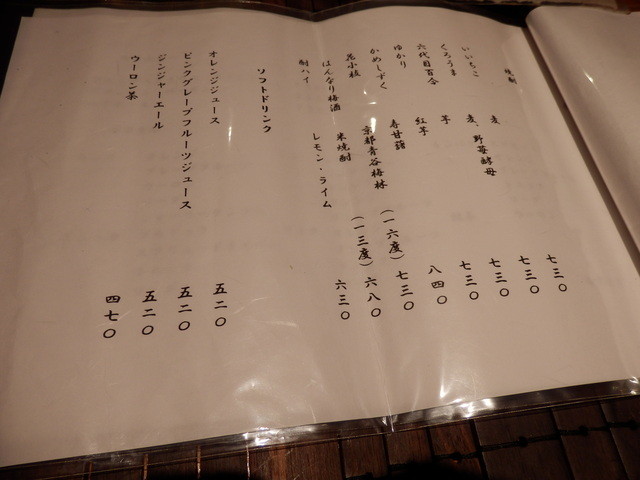 焼酎
いいちこ 麦 七三〇
くろうま 麦、野苺酵母 七三〇
六代目百合 芋 七三〇
ゆかり 紅芋 七三〇
かめしずく 春甘藷 八四〇
花小枝 京都青谷梅林 (一六度) 七三〇
はんなり梅酒 米焼酎 (一三度) 六八〇
酎ハイ レモン・ライム 六三〇
ソフトドリンク
オレンジジュース 五二〇
ピンクグレープフルーツジュース 五二〇
ジンジャーエール 五二〇
ウーロン茶 四七〇